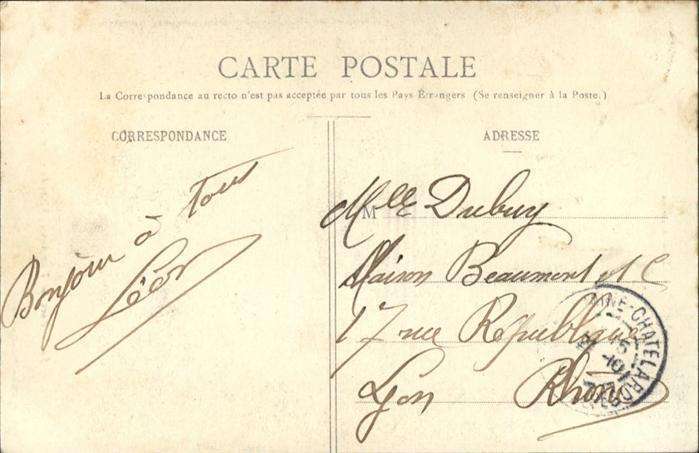 CARTE POSTALE
La Correspondance au recto n'est pas acceptée par tous les Pays Étrangers (Se renseigner à la Poste.)
CORRESPONDANCE
Bonjour à Tous
Léon
ADRESSE
Mlle Dubuy
Maison Beaumont et C
17 rue République
Lyon Rhône
AINE-CHATELARD